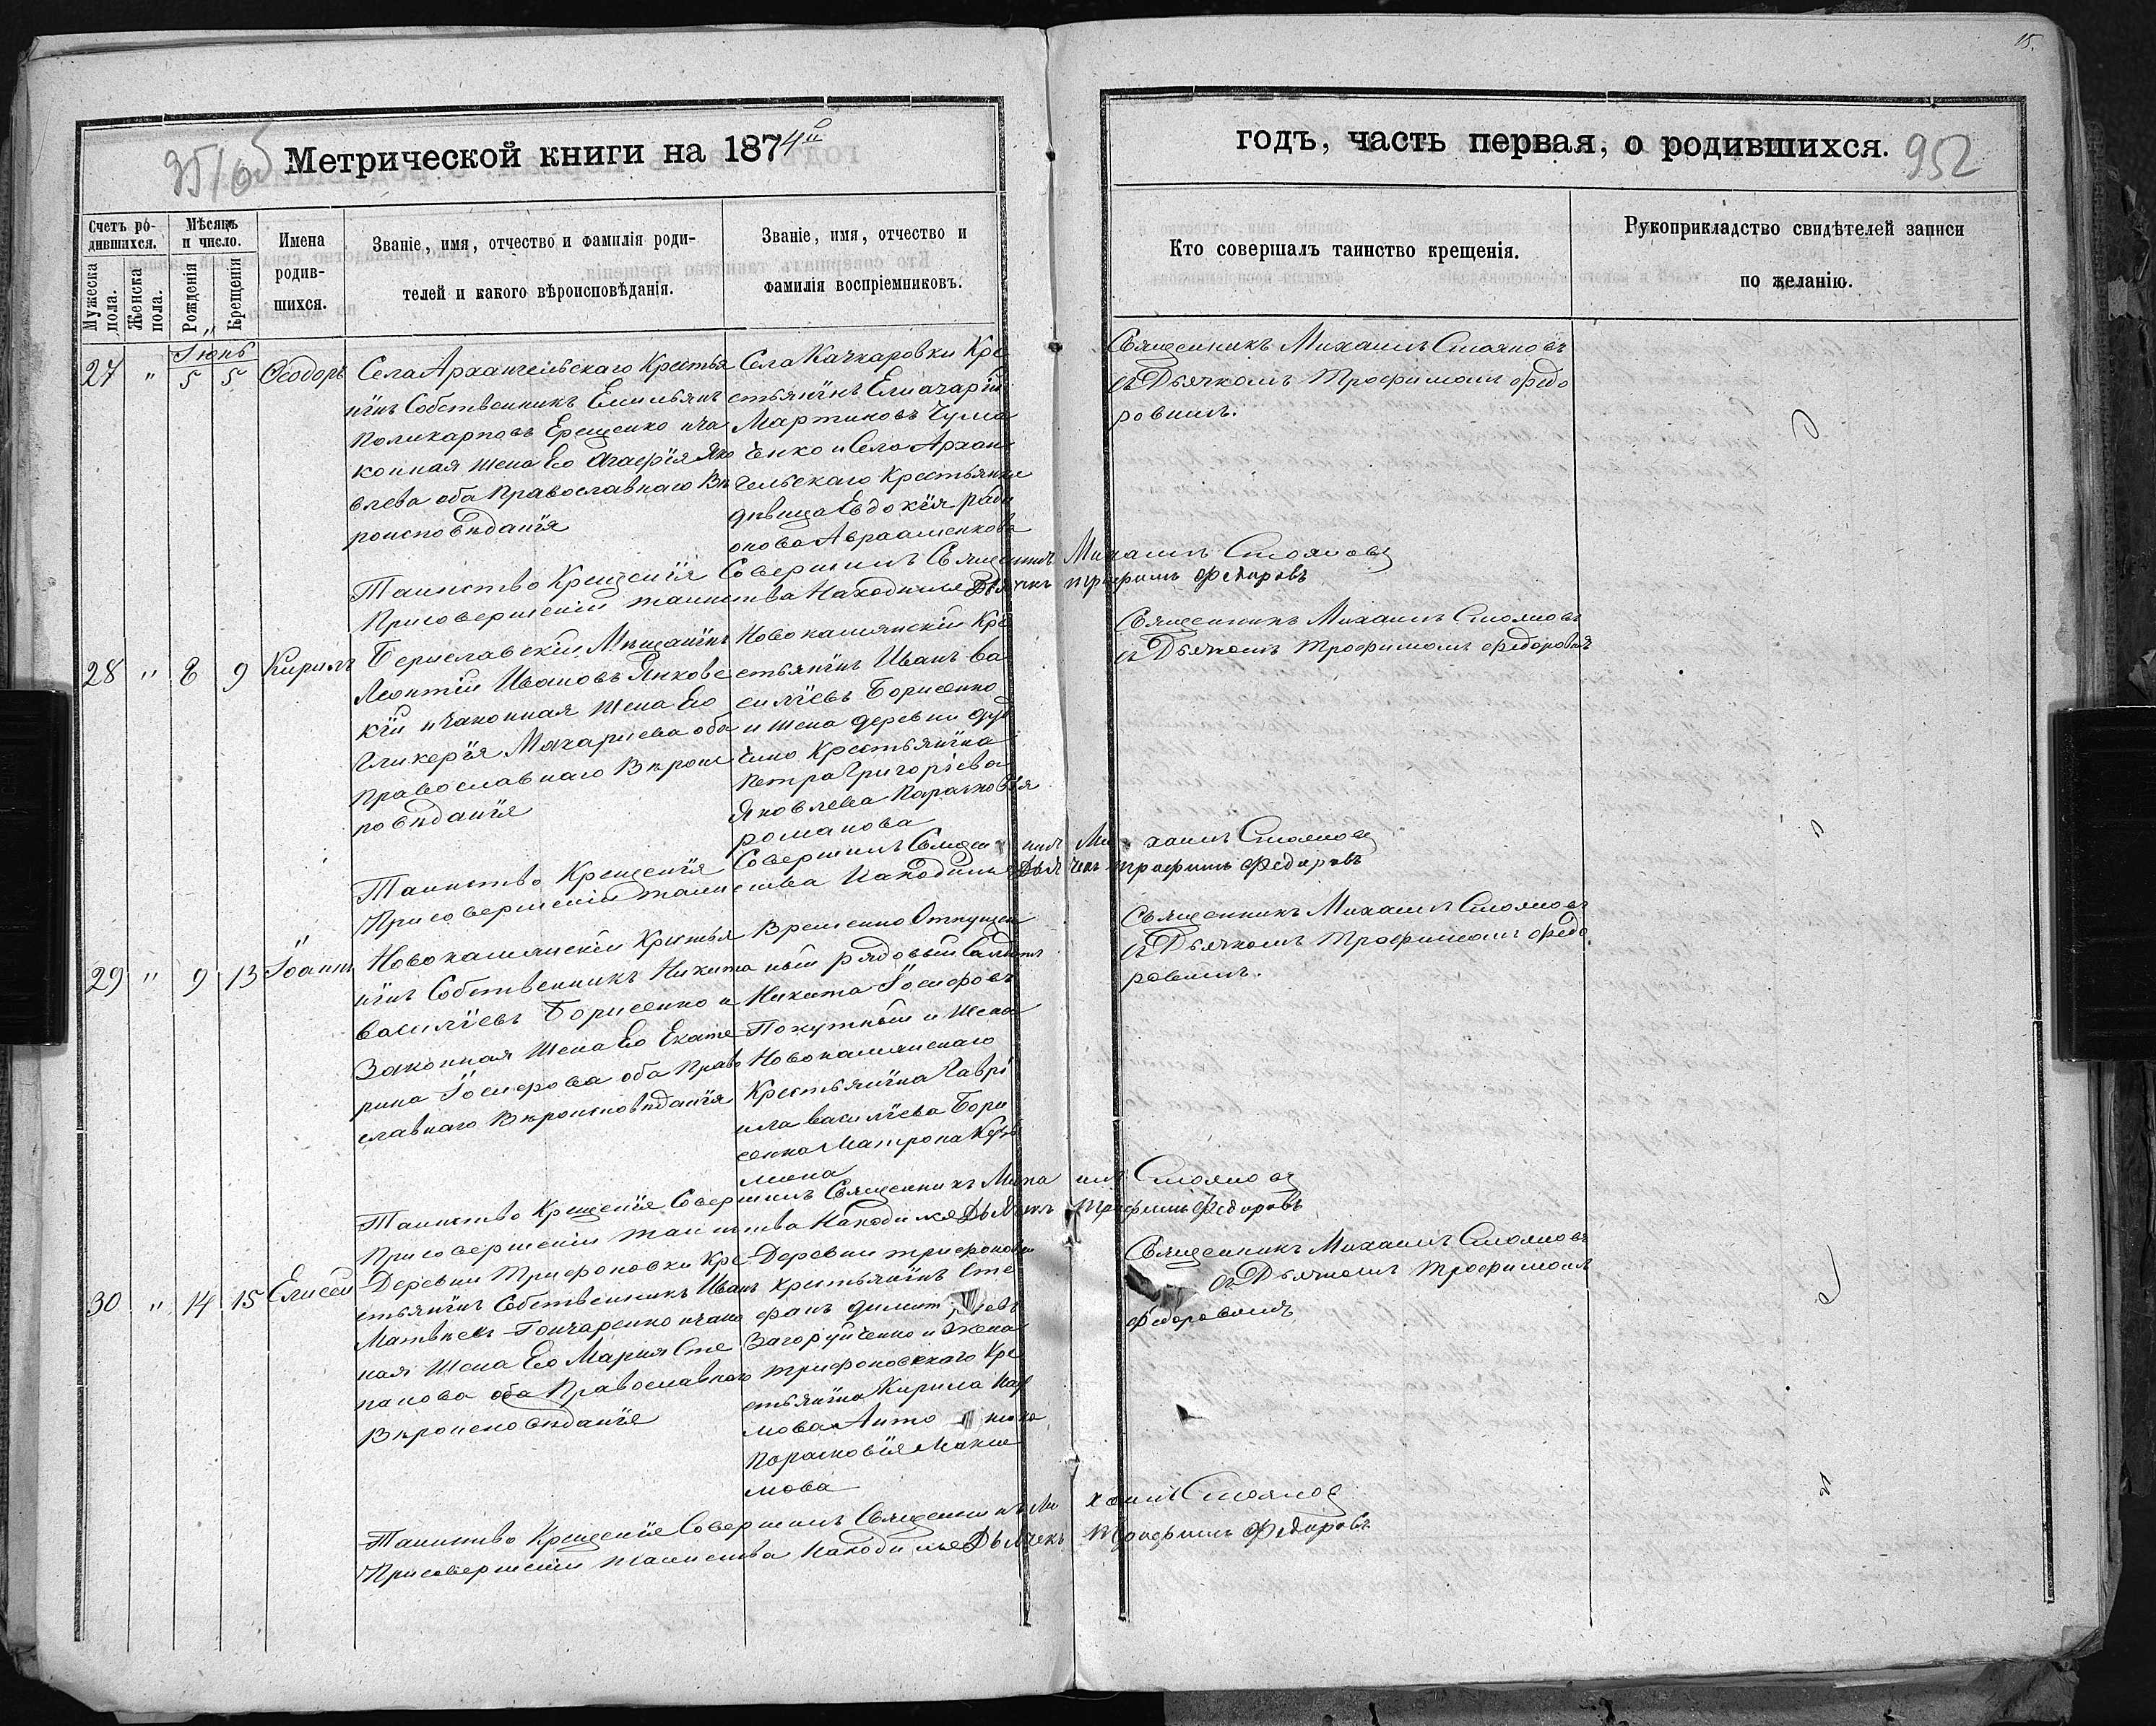 15.
951 об
Метрической книги на 1874й
годъ, часть первая, о родившихся.
952
Счетъ ро-
дившихся.
Мужеска пола.
Женска пола.
Мѣсяцъ
и число.
Рожденія
Крещенія
Имена
родив-
шихся.
Званіе, имя, отчество и фамилія роди-
телей и какого вѣроисповѣданія.
Званіе, имя, отчество и
фамилія воспріемниковъ.
Кто совершалъ таинство крещенія.
Рукоприкладство свидѣтелей записи
по желанію.
Іюнь
27 " 5 5 Ѳеодоръ
Села Архангельскаго Крестья
нинъ Собственникъ Емильянъ
Поликарповъ Ерещенко и за
конная жена Его Агафія Яко
влева оба Православнаго Вѣ
роисповѣданія
Села Качкаровки Кре
стьянинъ Елиазарій
Мартиновъ Чума
ченко и Села Архан
гельскаго Крестьянка
дѣвица Евдокія
Авраменкова
Священникъ Михаилъ Стояновъ
съ Дьячкомъ Трофимомъ Федо
ровимъ.
Таинство Крещенія Совершилъ Священникъ Михаилъ Стояновъ
При совершеніи таинства Находился Дьячекъ Трофимъ Федоровъ
28 " 8 9 Кирилъ
Бериславскій Мѣщанинъ
Леонтій Ивановъ Янковс
кій и Законная жена Его
Гликерія Макариева оба
Православнаго Вѣроис
повѣданія
Новокамянскій Кре
стьянинъ Иванъ Ва
силіевъ Борисенко
и жена деревни Дуд
чино Крестьянина
Петра Григоріева
Яковлева Парасковія
романова
Священникъ Михаилъ Стояновъ
съ Дьячкомъ Трофимомъ Федоровимъ
Таинство Крещенія Совершилъ Священникъ Михаилъ Стояновъ
При совершеніи таинства Находился Дьячекъ Трофимъ Федоровъ
29 " 9 13 Іоаннъ
Новокамянскій Крестья
нинъ Собственникъ Никита
Василіевъ Борисенко и
Законная жена Его Екате
рина Іосифова оба Право
славнаго Вѣроисповѣданія
Временно Отпущен
ный рядовый Солдатъ
Никита Іосифовъ
Покутный и Жена
Новокамянскаго
Крестьянина Гаврі
ила Василіева Бори
сенка Матрона
Священникъ Михаилъ Стояновъ
съ Дьячкомъ Трофимомъ Федо
ровимъ.
Таинство Крещенія Совершилъ Священникъ Михаилъ Стояновъ
При совершеніи таинства Находился Дьячекъ Трофимъ Федоровъ
30 " 14 15 Елисей
Деревни Трифоновки Кре
стьянинъ Собственникъ Иванъ
Матвѣевъ Гончаренко и зако
ная жена Его Мария Сте
панова оба Православнаго
Вѣроисповѣданія
Деревни Трифоновки
Крестьянинъ Сте
фанъ Димитріевъ
Загоруйченко и Жена
Трифоновскаго Кре
стьянина Кирила Нау
мова
Парасковія Макси
мова
Священникъ Михаилъ Стояновъ
съ Дьячкомъ Трофимомъ
Федоровимъ
Таинство Крещенія Совершилъ Священникъ Михаилъ Стояновъ
При совершеніи таинства Находился Дьячекъ Трофимъ Федоровъ